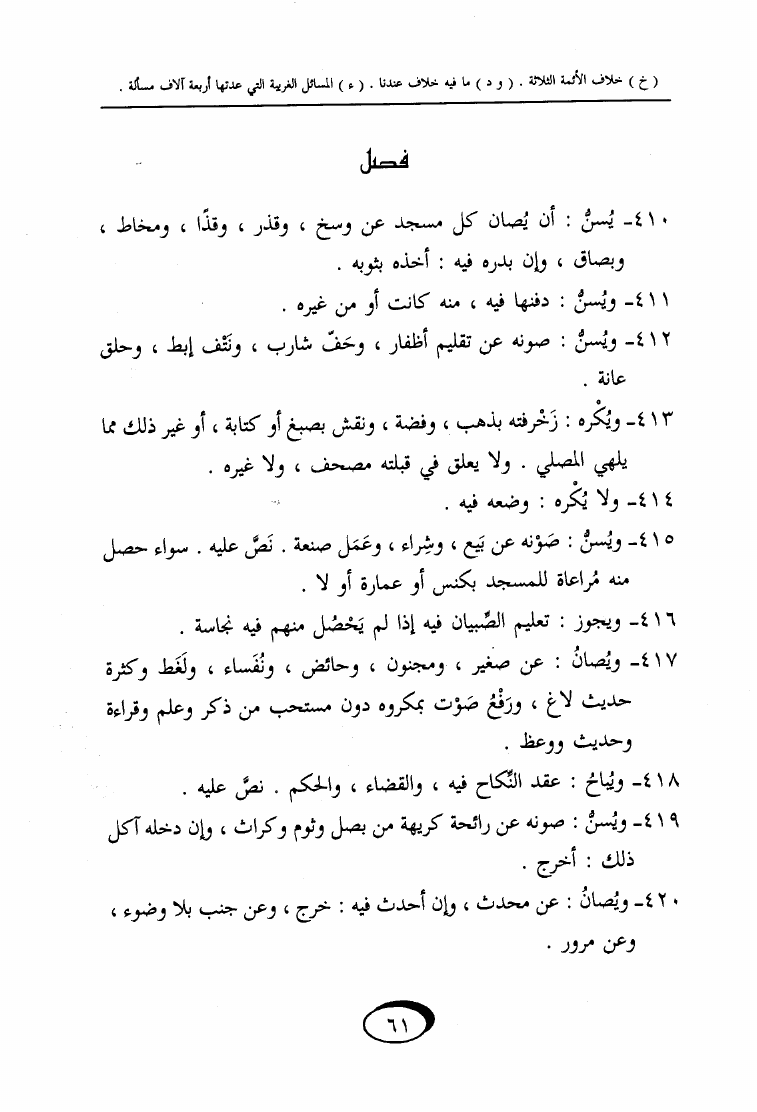 ( خ ) خلاف الأئمة الثلاثة . ( و د ) ما فيه خلاف عندنا . ( ء ) المسائل الغريبة التي عدتها أربعة آلاف مسألة .
فصل
٤١٠ـ يُسنُّ : أن يُصان كل مسجد عن وسخ ، وقذر ، وقذًا ، ومخاط ،
وبصاق ، وإن بدره فيه : أخذه بثوبه .
٤١١ـ ويُسنُّ : دفنها فيه ، منه كانت أو من غيره .
٤١٢ـ ويُسنُّ : صونه عن تقليم أظفار ، وحَفّ شارب ، ونَتْف إبط ، وحلق
عانة .
٤١٣ـ ويُكْره : زَخْرفته بذهب ، وفضة ، ونقش بصبغ أو كتابة ، أو غير ذلك مما
يلهي المصلي . ولا يعلق في قبلته مصحف ، ولا غيره .
٤١٤ـ ولا يُكْره : وضعه فيه .
٤١٥ـ ويُسنُّ : صَوْنه عن بَيع ، وشِراء ، وعَمَل صنعة . نَصَّ عليه . سواء حصل
منه مُراعاة للمسجد بكنس أو عمارة أو لا .
٤١٦ـ ويجوز : تعليم الصِّبيان فيه إذا لم يَحْصُل منهم فيه نجاسة .
٤١٧ـ ويُصانُ : عن صغير ، ومجنون ، وحائض ، ونُفَساء ، ولَغَط وكثرة
حديث لاغ ، ورَفْعُ صَوْت بمكروه دون مستحب من ذكر وعلم وقراءة
وحديث ووعظ .
٤١٨ـ ويُباحُ : عقد النِّكاح فيه ، والقضاء ، والحكم . نصَّ عليه .
٤١٩ـ ويُسنُّ : صونه عن رائحة كريهة من بصل وثوم وكراث ، وإن دخله آكل
ذلك : أخرج .
٤٢٠ـ ويُصانُ : عن محدث ، وإن أحدث فيه : خرج ، وعن جنب بلا وضوء ،
وعن مرور .
٦١